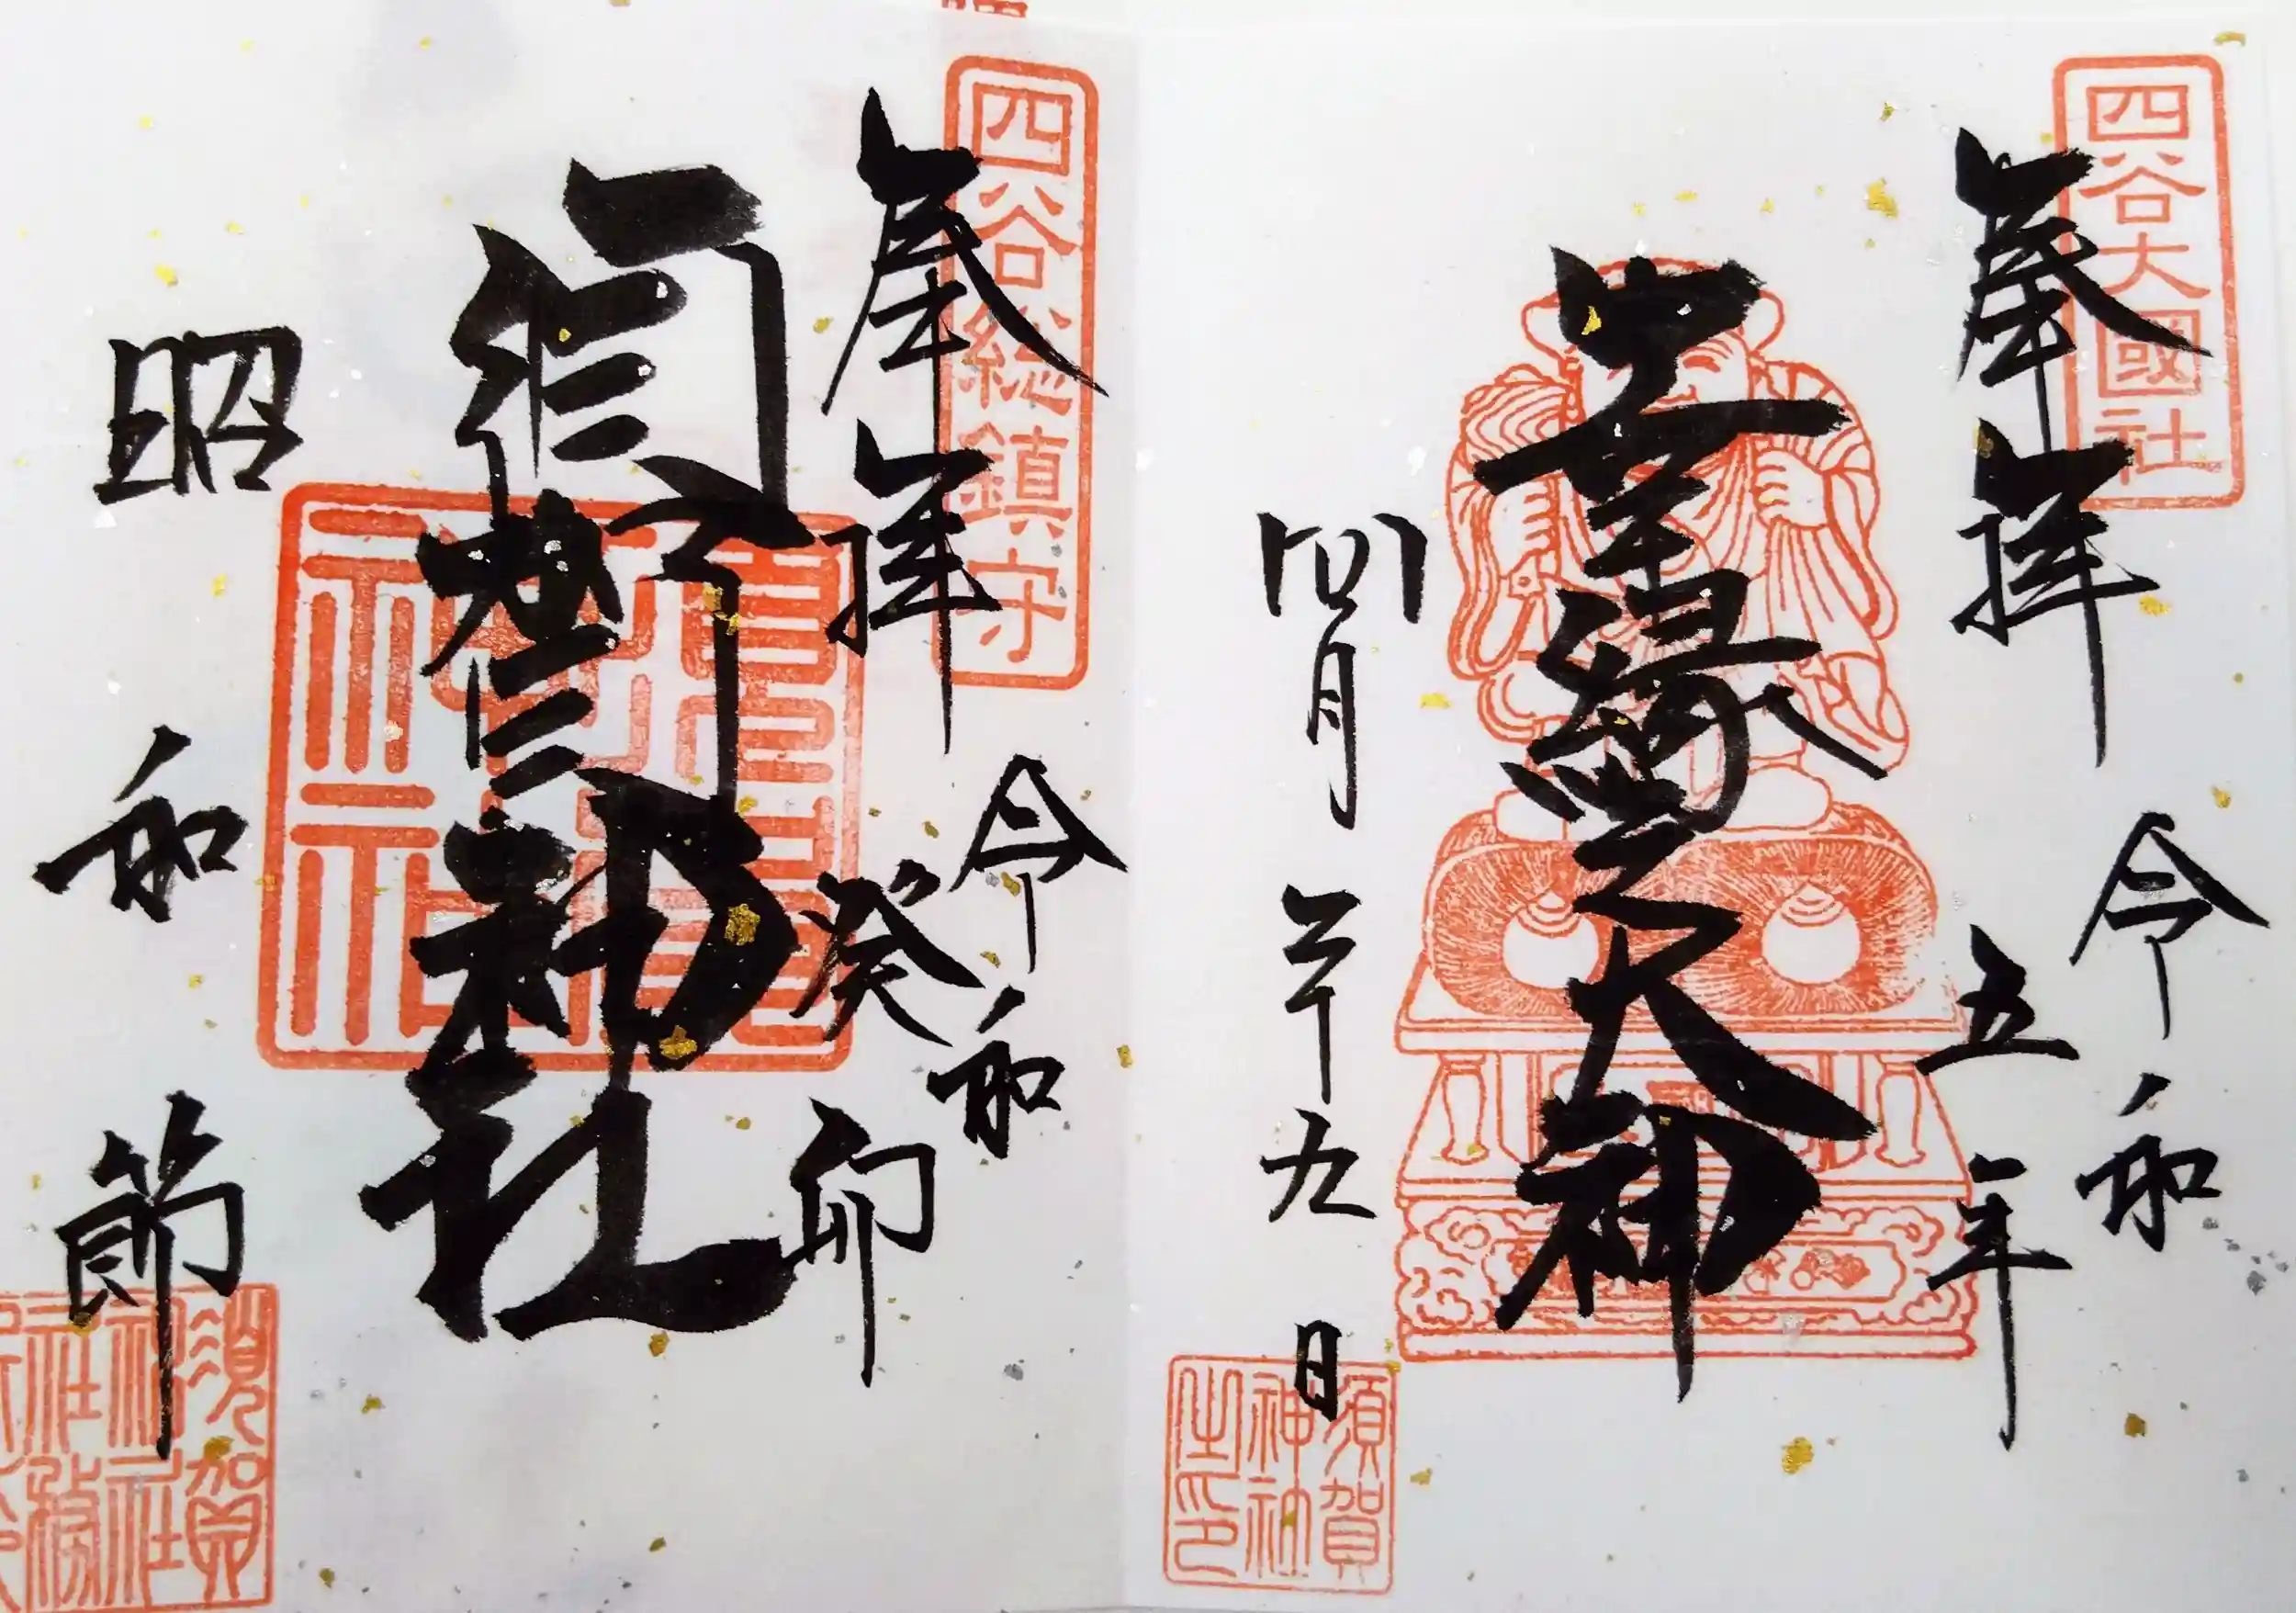 四谷大國社
奉拝
令和
五年
幸縁之大神
四月二十九日
須賀神社之印
四谷総鎮守
奉拝
令和
癸卯
須賀神社
須賀神社
昭和節
須賀神社社務